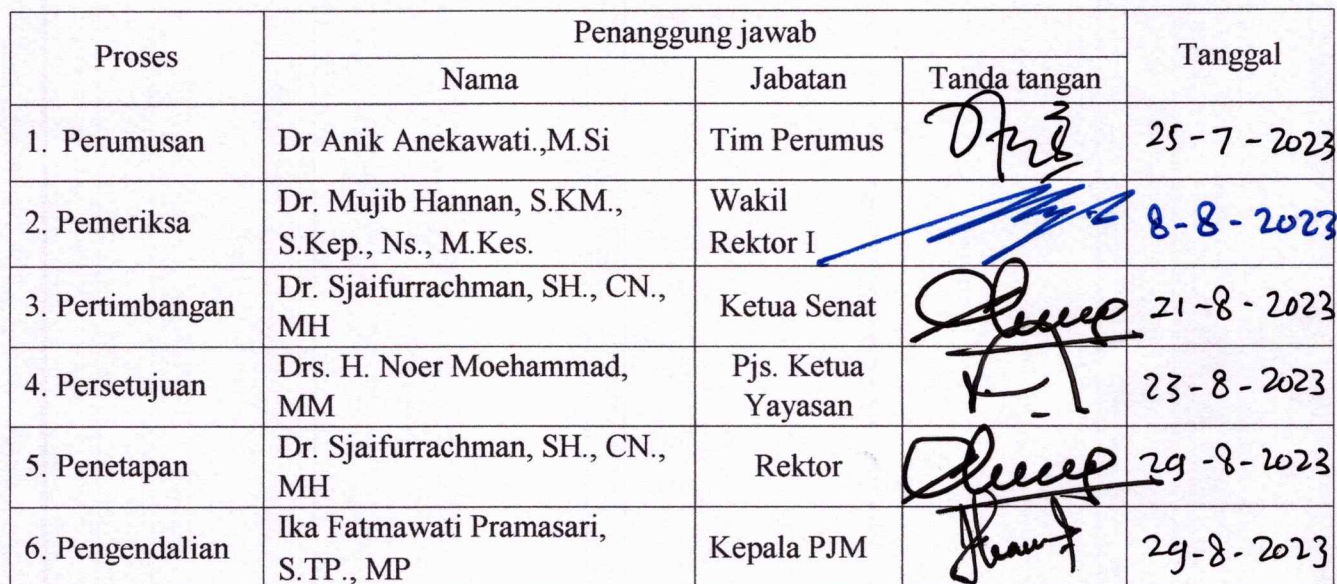 Proses Penanggung jawab Tanggal
Nama Jabatan Tanda tangan
1. Perumusan Dr Anik Anekawati.,M.Si Tim Perumus 25-7-2023
2. Pemeriksa Dr. Mujib Hannan, S.KM., Wakil 8-8-2023
S.Kep., Ns., M.Kes. Rektor I
3. Pertimbangan Dr. Sjaifurrachman, SH., CN., Ketua Senat 21-8-2023
MH
4. Persetujuan Drs. H. Noer Moehammad, Pjs. Ketua 23-8-2023
MM Yayasan
5. Penetapan Dr. Sjaifurrachman, SH., CN., Rektor 29-8-2023
MH
6. Pengendalian Ika Fatmawati Pramasari, Kepala PJM 29-8-2023
S.TP., MP